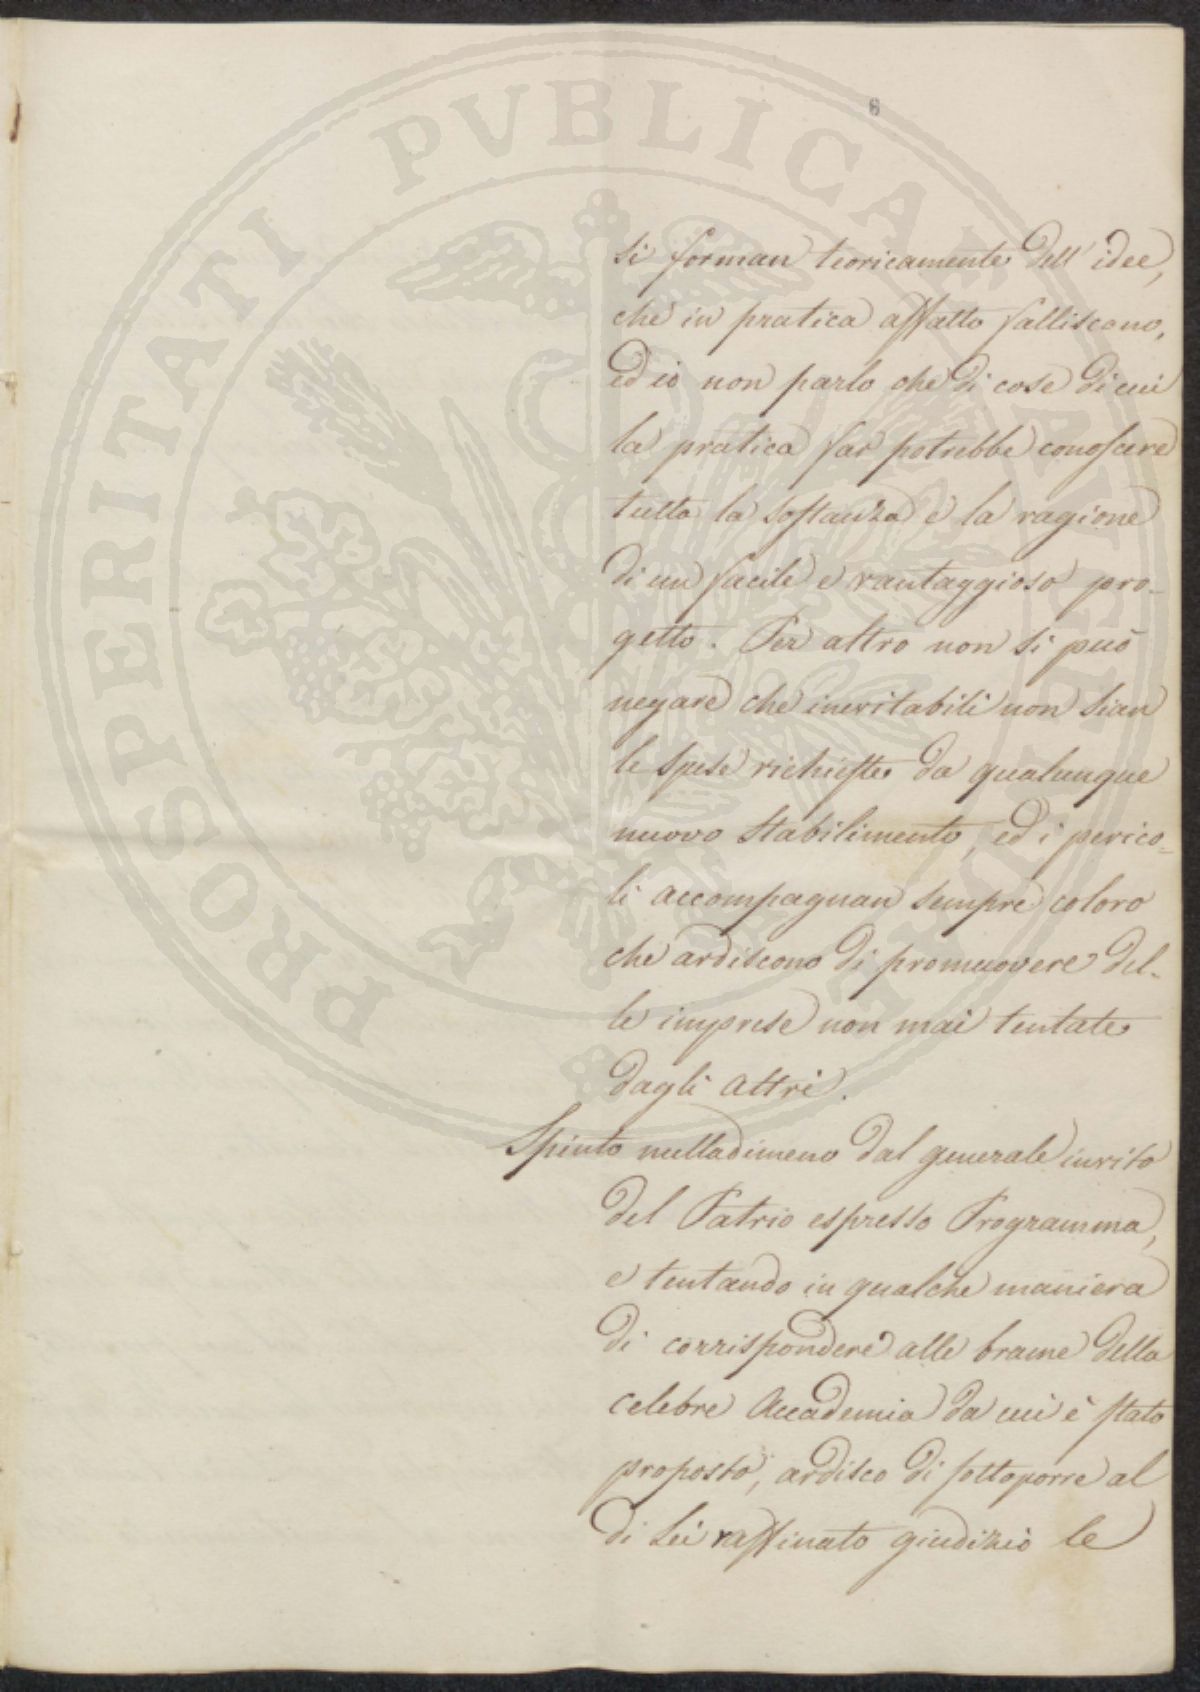 6
si forman teoricamente dell' idee,
che in pratica affatto falliscono,
ed io non parlo che di cose di cui
la pratica far potrebbe conoscere
tutta la sostanza e la ragione
di un facile e vantaggioso pro-
getto. Per altro non si può
negare che inevitabili non sian
le spese richieste da qualunque
nuovo stabilimento, ed i perico-
li accompagnan sempre coloro
che ardiscono di promuovere del-
le imprese non mai tentate
dagli altri.
Spinto nulladimeno dal generale invito
del Patrio espresso Programma,
e tentando in qualche maniera
di corrispondere alle brame della
celebre Accademia da cui è stato
proposto, ardisco di sottoporre al
di Lei raffinato giudizio le
PROSPERITATI PVBLICAE AVGENDAE